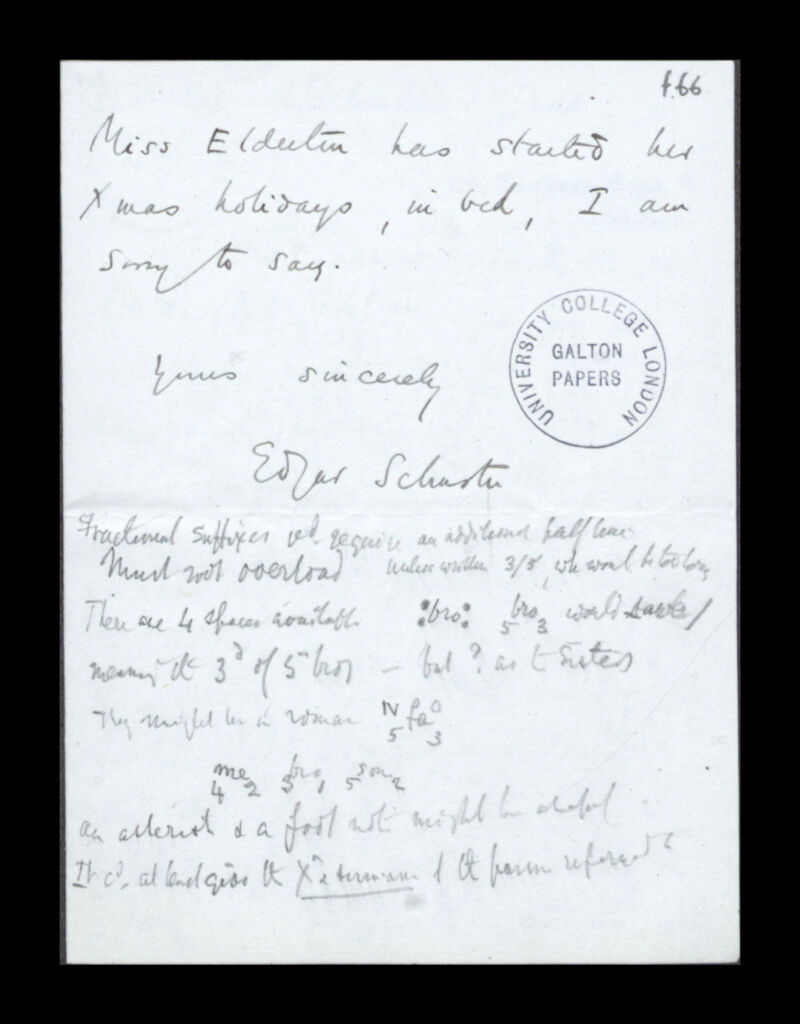 f.66
Miss Elderton has started her
Xmas holidays, in bed, I am
sorry to say.
UNIVERSITY COLLEGE LONDON
GALTON
PAPERS
Yours sincerely
Edgar Schuster
Fractional suffixes wd require an additional half line
Must not overload unless written 3/5, wh would be too long
There are 4 spaces available :bro: 5 bro 3 would
meaning the 3d of 5 bros — but ? as to Sisters
They might be in roman IV 5 fa 0 3
4 me 2 3 bro 1 5 son 2
an asterisk & a foot note might be useful
It cd. at least give the Xn & surname of the person referred to